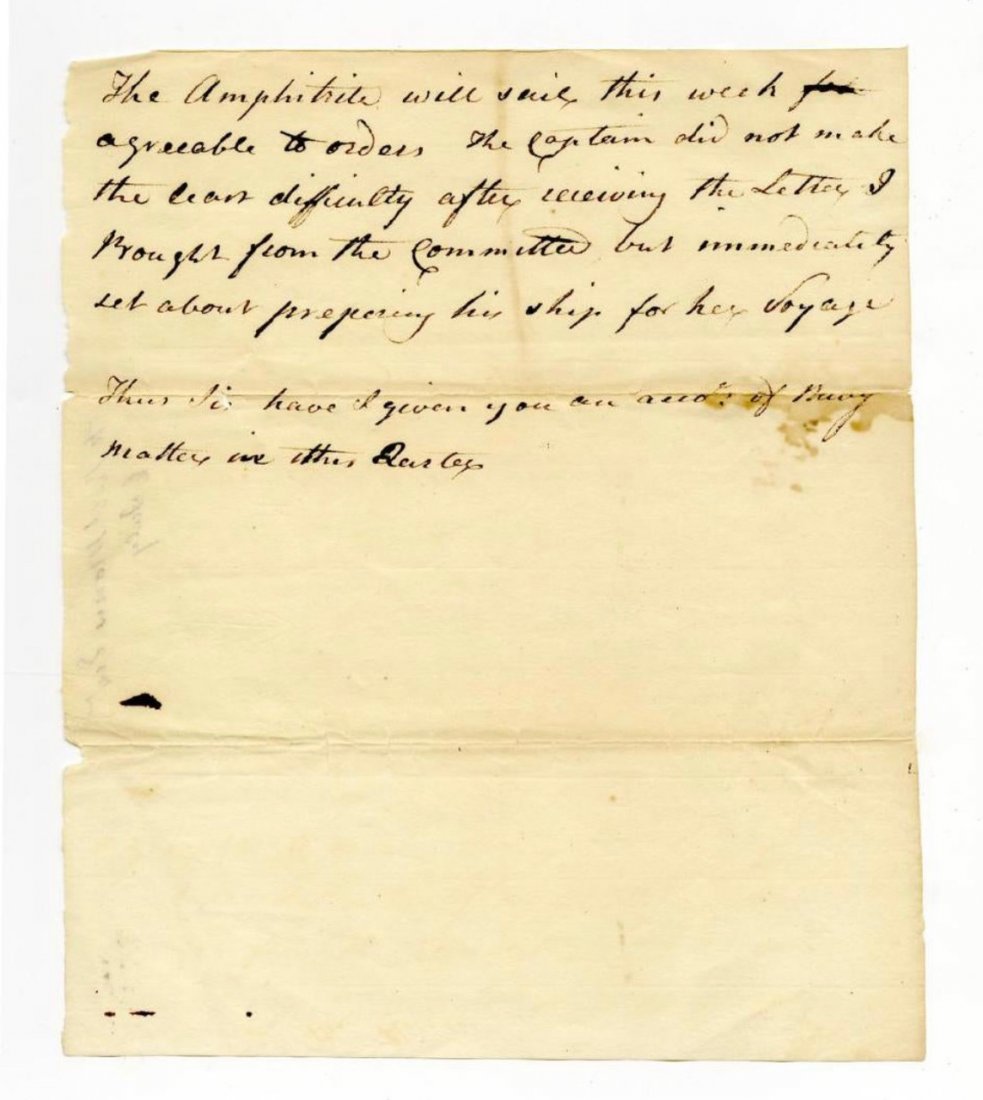 The Amphitrite will sail this week for
agreeable to orders The Captain did not make
the least difficulty after receiving the Letter I
Brought from the Committee but immediately
set about prepering his ship for her Voyage
Thus Sir have I given you an accot. of Every
Matter in this Qarter